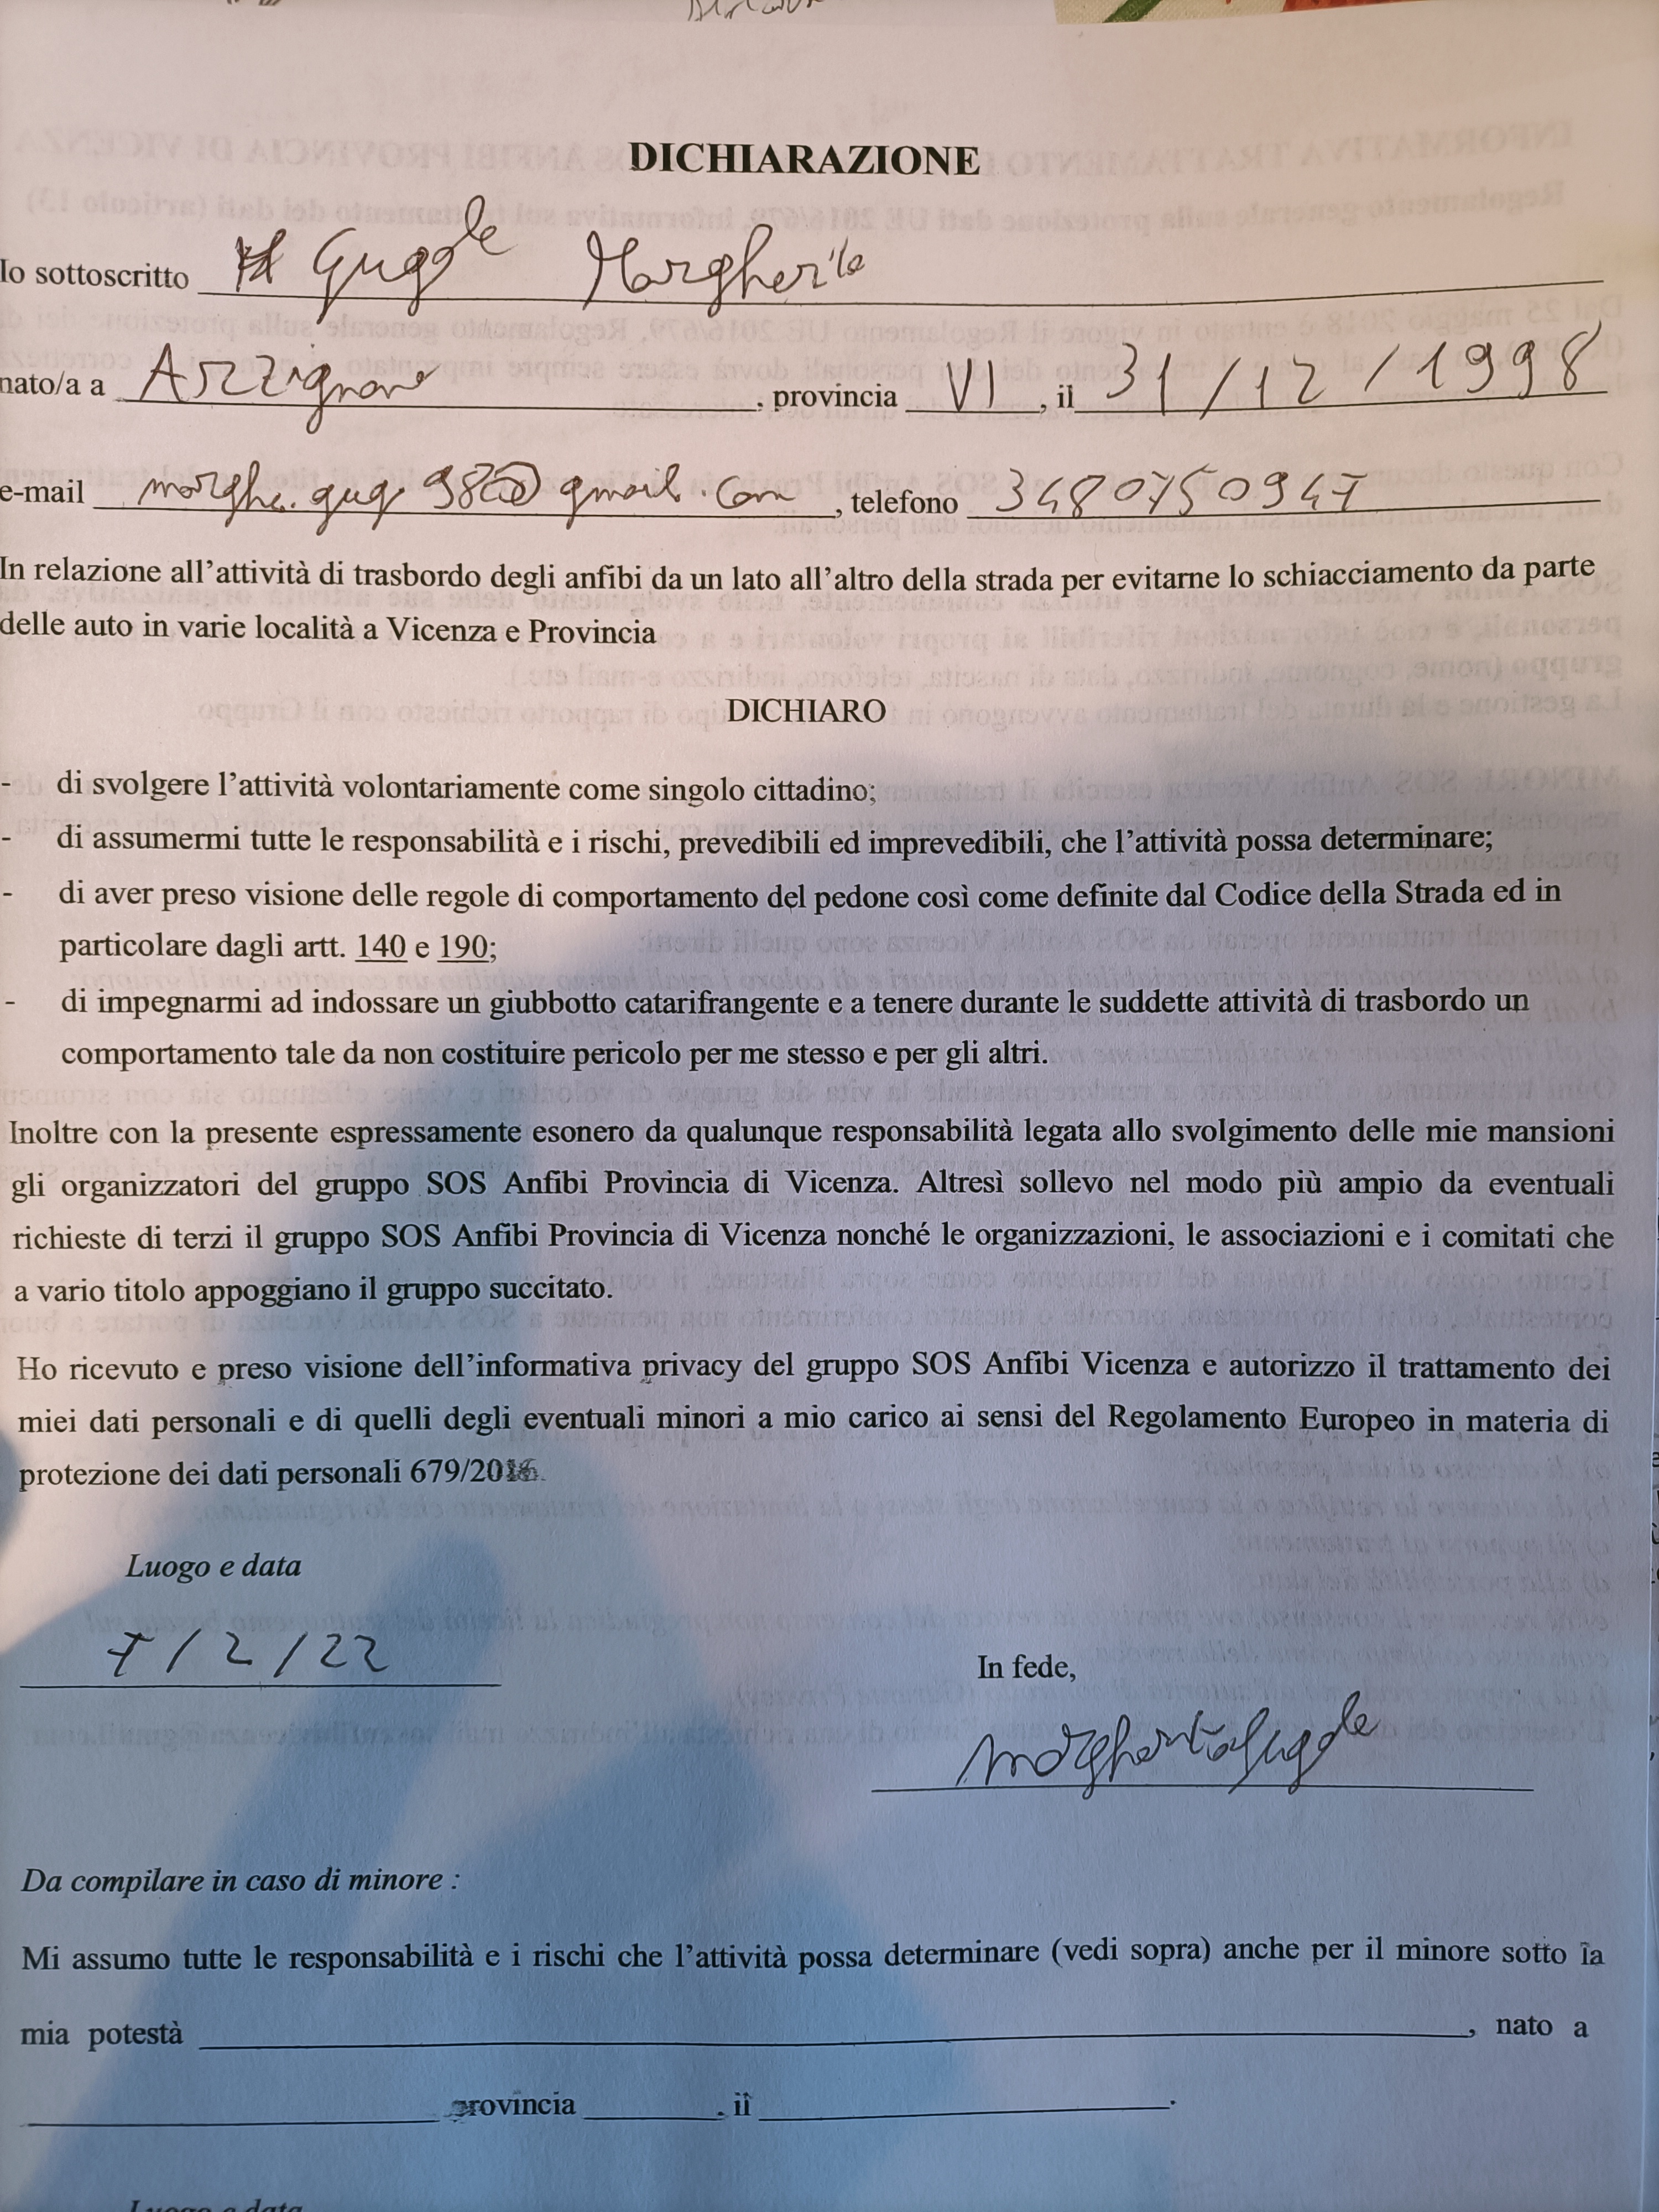 DICHIARAZIONE
Io sottoscritto Guggole Margherita
nato/a a Arzignano, provincia VI, il 31/12/1998
e-mail marghe.gug.98@gmail.com, telefono 3480750947
In relazione all'attività di trasbordo degli anfibi da un lato all'altro della strada per evitarne lo schiacciamento da parte
delle auto in varie località a Vicenza e Provincia
DICHIARO
- di svolgere l'attività volontariamente come singolo cittadino;
- di assumermi tutte le responsabilità e i rischi, prevedibili ed imprevedibili, che l'attività possa determinare;
- di aver preso visione delle regole di comportamento del pedone così come definite dal Codice della Strada ed in
particolare dagli artt. 140 e 190;
- di impegnarmi ad indossare un giubbotto catarifrangente e a tenere durante le suddette attività di trasbordo un
comportamento tale da non costituire pericolo per me stesso e per gli altri.
Inoltre con la presente espressamente esonero da qualunque responsabilità legata allo svolgimento delle mie mansioni
gli organizzatori del gruppo SOS Anfibi Provincia di Vicenza. Altresì sollevo nel modo più ampio da eventuali
richieste di terzi il gruppo SOS Anfibi Provincia di Vicenza nonché le organizzazioni, le associazioni e i comitati che
a vario titolo appoggiano il gruppo succitato.
Ho ricevuto e preso visione dell'informativa privacy del gruppo SOS Anfibi Vicenza e autorizzo il trattamento dei
miei dati personali e di quelli degli eventuali minori a mio carico ai sensi del Regolamento Europeo in materia di
protezione dei dati personali 679/2016.
Luogo e data
7/2/22
In fede,
Margherita Guggole
Da compilare in caso di minore :
Mi assumo tutte le responsabilità e i rischi che l'attività possa determinare (vedi sopra) anche per il minore sotto la
mia potestà , nato a
provincia , il .
Luogo e data